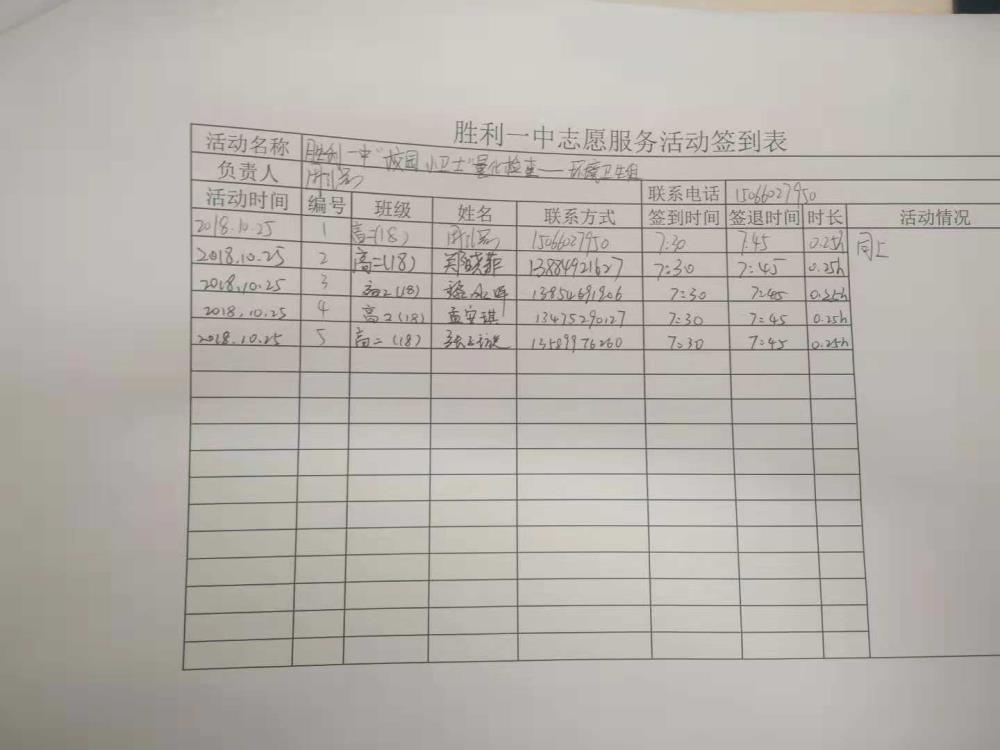 胜利一中志愿服务活动签到表
活动名称 胜利一中"校园小卫士"量化检查——环境卫生组
负责人 联系电话 15066027950
活动时间 编号 班级 姓名 联系方式 签到时间 签退时间 时长 活动情况
2018.10.25 1 高二(18) 15066027950 7:30 7:45 0.25h 同上
2018.10.25 2 高二(18) 13884921627 7:30 7:45 0.25h
2018.10.25 3 高二(18) 13854691906 7:30 7:45 0.25h
2018.10.25 4 高二(18) 孟安琪 13475290127 7:30 7:45 0.25h
2018.10.25 5 高二(18) 13589976260 7:30 7:45 0.25h